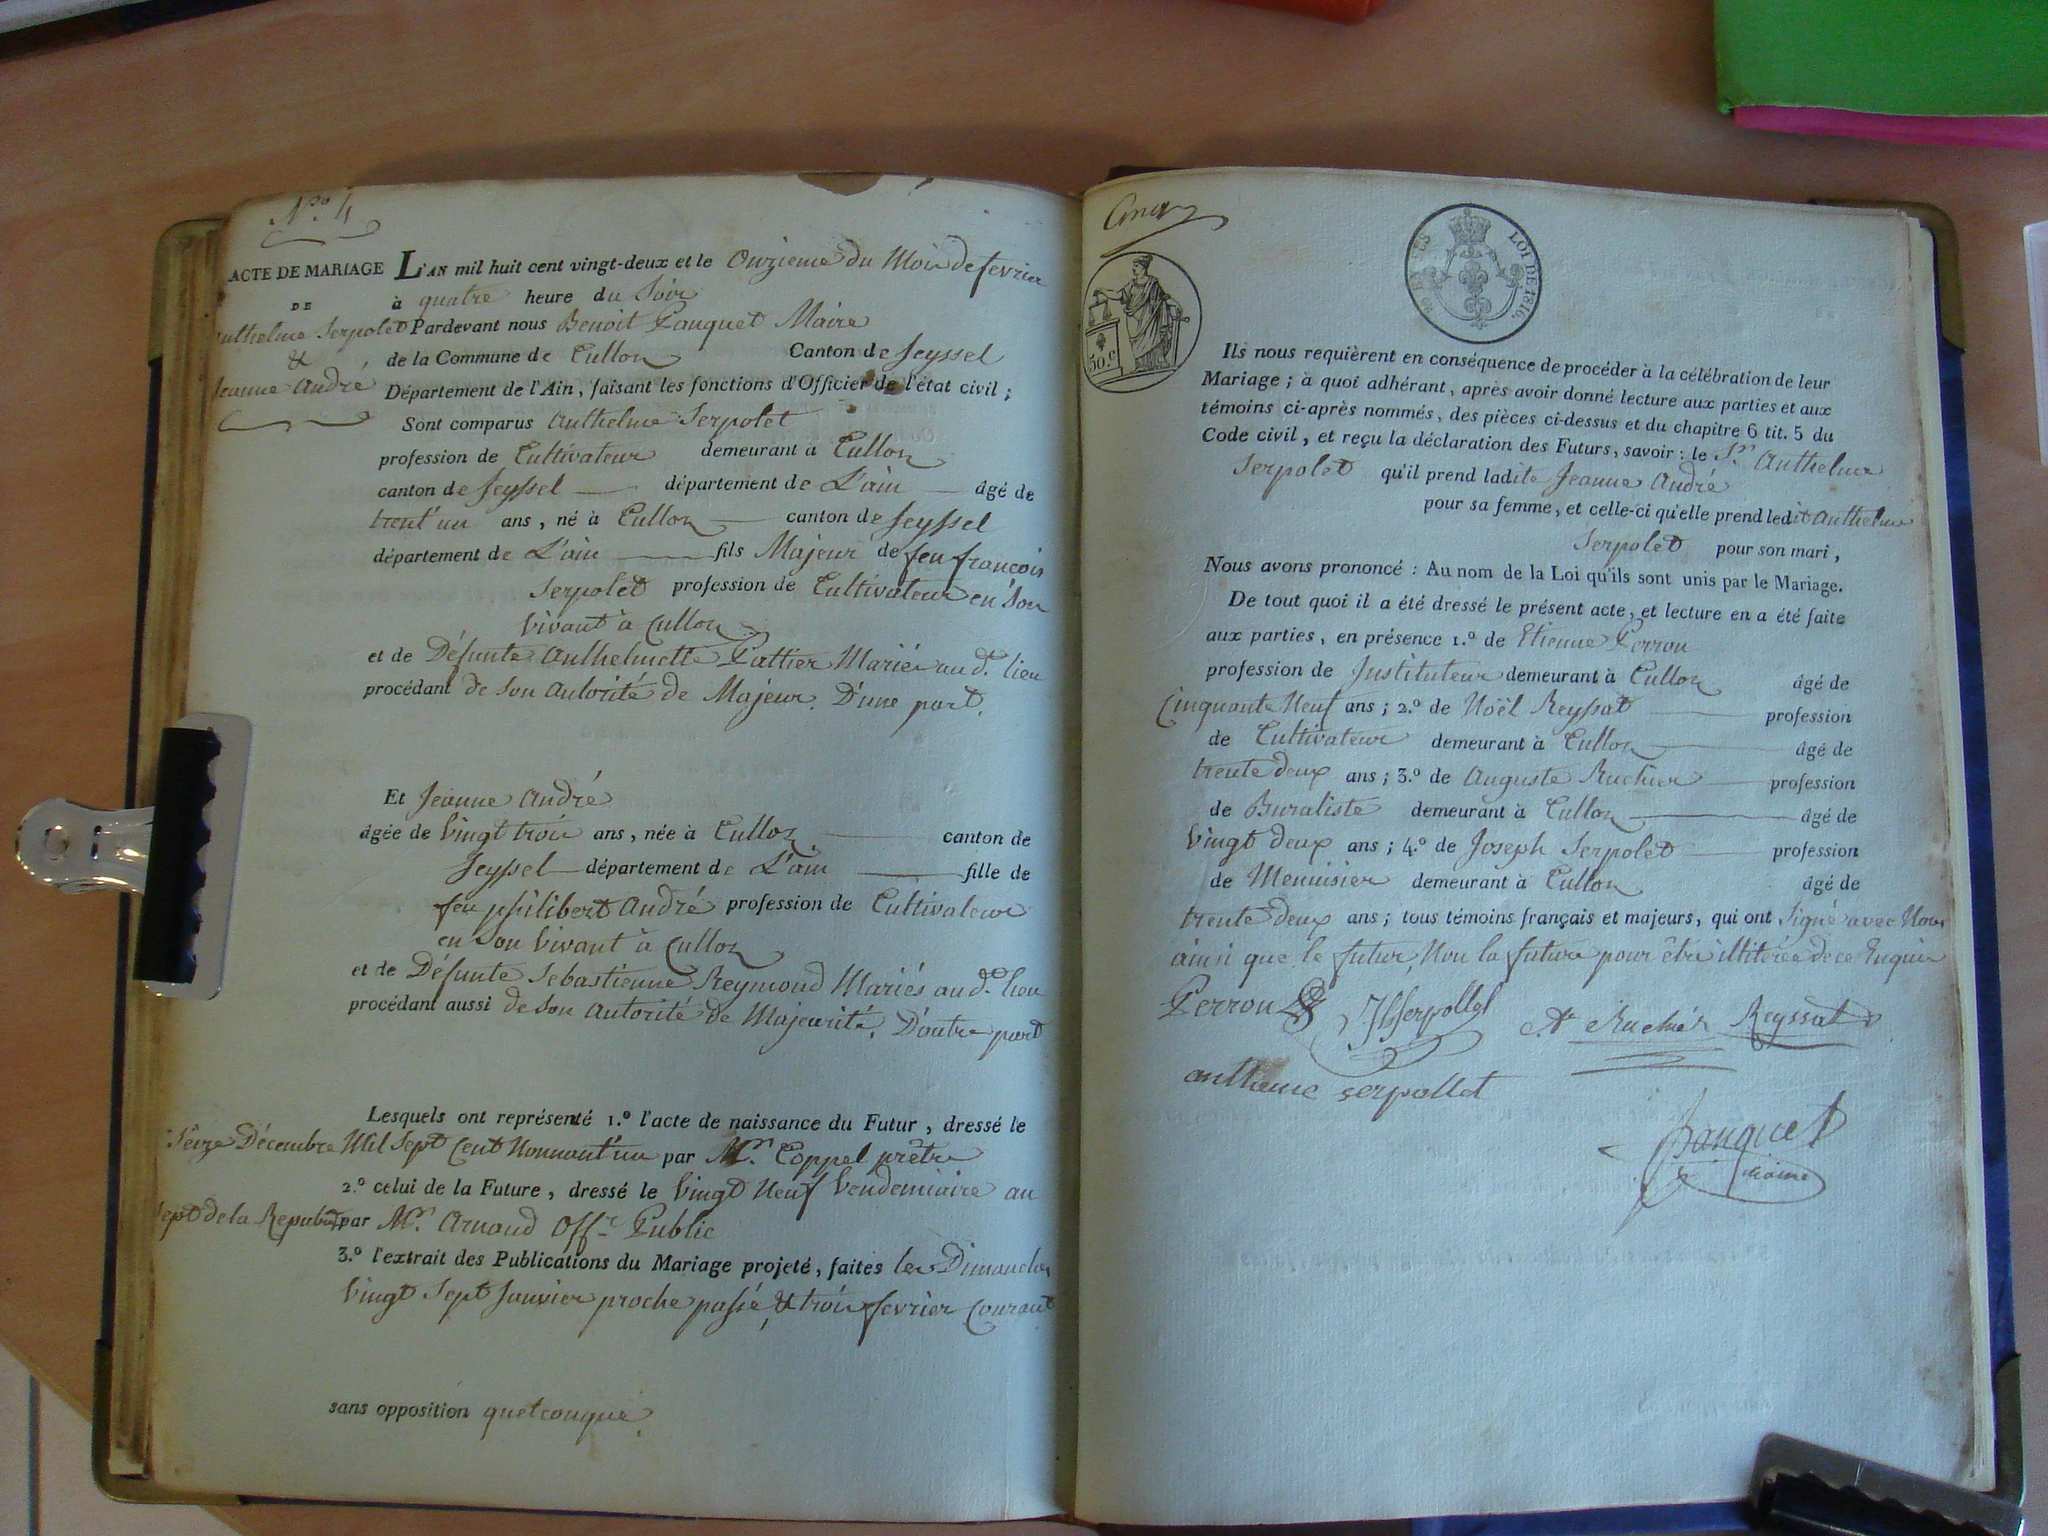 N.o 4
ACTE DE MARIAGE
DE
Anthelme Serpolet
&
Jeanne André
L'AN mil huit cent vingt-deux et le Onzieme du Mois de fevrier
à quatre heure du Soir
Pardevant nous Benoit Panquet Maire
de la Commune de Culloz Canton de Seyssel
Département de l'Ain, faisant les fonctions d'Officier de l'état civil;
Sont comparus Anthelme Serpolet
profession de Cultivateur demeurant à Culloz
canton de Seyssel département de L'ain âgé de
trent'un ans, né à Culloz canton de Seyssel
département de L'ain fils Majeur de feu francois
Serpolet profession de Cultivateur en Son
vivant à Culloz
et de Défunte Anthelmette Mariés au d. lieu
procédant de Son Autorité de Majeur. D'une part.
Et Jeanne André
âgée de vingt trois ans, née à Culloz canton de
Seyssel département de L'ain fille de
feu philibert André profession de Cultivateur
en Son vivant à Culloz
et de Défunte Sebastienne Reymond Mariés au d. lieu
procédant aussi de Son Autorité de Majorité. D'autre part
Lesquels ont représenté 1.o l'acte de naissance du Futur, dressé le
Seize Décembre Mil Sept Cent Nonnant'un par Mr. Coppel prêtre
2.o celui de la Future, dressé le vingt Neuf Vendemiaire an
Sept de la Republ. par Mr. Arnaud Offr. Public
3.o l'extrait des Publications du Mariage projeté, faites les Dimanches
vingt Sept Janvier proche passé, & trois fevrier Courant
sans opposition quelconque.
Cinq
50.C
LOI DE 1816.
Ils nous requièrent en conséquence de procéder à la célébration de leur
Mariage; à quoi adhérant, après avoir donné lecture aux parties et aux
témoins ci-après nommés, des pièces ci-dessus et du chapitre 6 tit. 5 du
Code civil, et reçu la déclaration des Futurs, savoir: le Sr. Anthelme
Serpolet qu'il prend ladite Jeanne André
pour sa femme, et celle-ci qu'elle prend ledit Anthelme
Serpolet pour son mari,
Nous avons prononcé: Au nom de la Loi qu'ils sont unis par le Mariage.
De tout quoi il a été dressé le présent acte, et lecture en a été faite
aux parties, en présence 1.o de Etienne Perron
profession de Instituteur demeurant à Culloz âgé de
Cinquante Neuf ans; 2.o de Noël Reyssat profession
de Cultivateur demeurant à Culloz âgé de
trente deux ans; 3.o de Auguste Ruchier profession
de Buraliste demeurant à Culloz âgé de
vingt deux ans; 4.o de Joseph Serpolet profession
de Menuisier demeurant à Culloz âgé de
trente deux ans; tous témoins français et majeurs, qui ont Signé avec Nous
ainsi que le futur, Non la future pour être illitérée de ce Enquis
Perron Serpollet Ar Ruchier Reyssat
antheme serpollet
Panquet
Maire